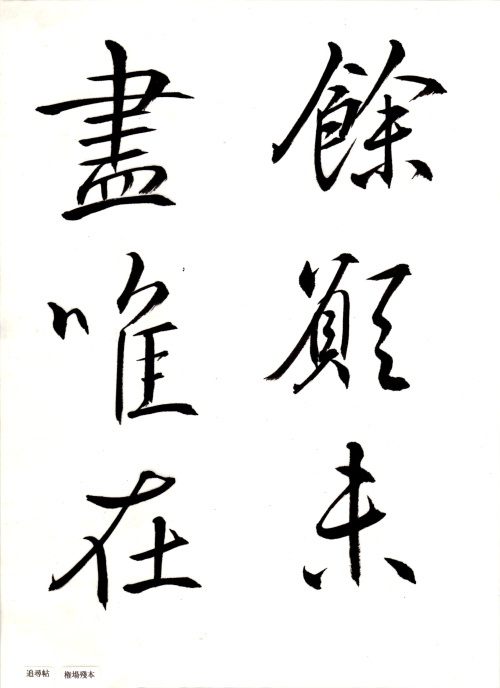 餘願未
盡唯在
追尋帖 権場殘本